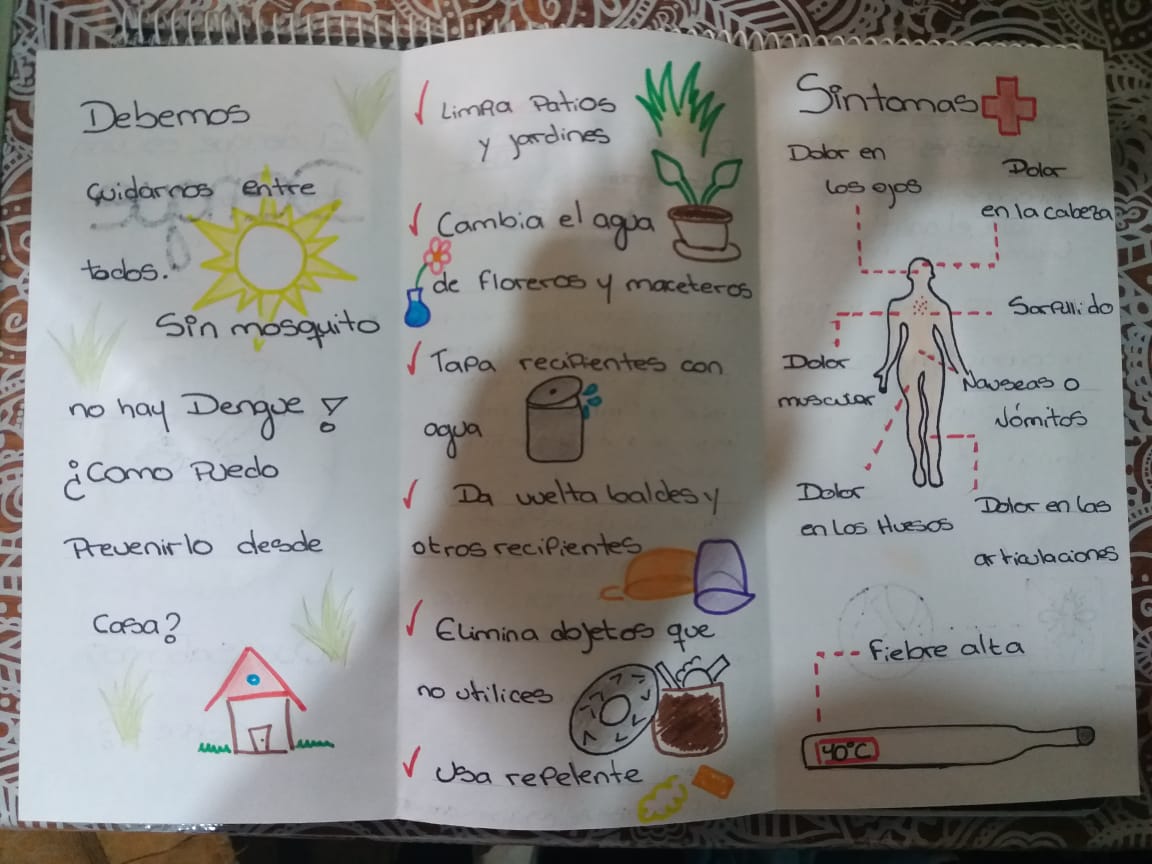 Debemos
Cuidarnos entre
todos.
Sin mosquito
no hay Dengue!
¿Como Puedo
Prevenirlo desde
Casa?
Limpia Patios
y jardines
Cambia el agua
de floreros y maceteros
Tapa recipientes con
agua
Da vuelta baldes y
otros recipientes
Elimina objetos que
no utilices
Usa repelente
Sintomas
Dolor en
los ojos
Dolor
en la cabeza
Sarpullido
Dolor
muscular
Nauseas o
Vómitos
Dolor
en los Huesos
Dolor en las
articulaciones
Fiebre alta
40°C